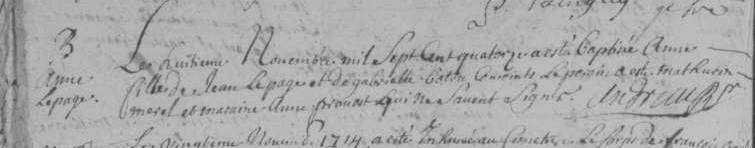 3
Anne
Lepage.
Le huitieme Novembre mil Sept Cent quatorze a esté Baptisé Anne
fille de Jean Lepage et de gabrielle Le parain a esté mathurin
morel et maraine Anne prouost qui ne Savent Signer.
Le vingtieme Novemb. 1714 a eté Inhumé au Cimetre Le Corps de françois